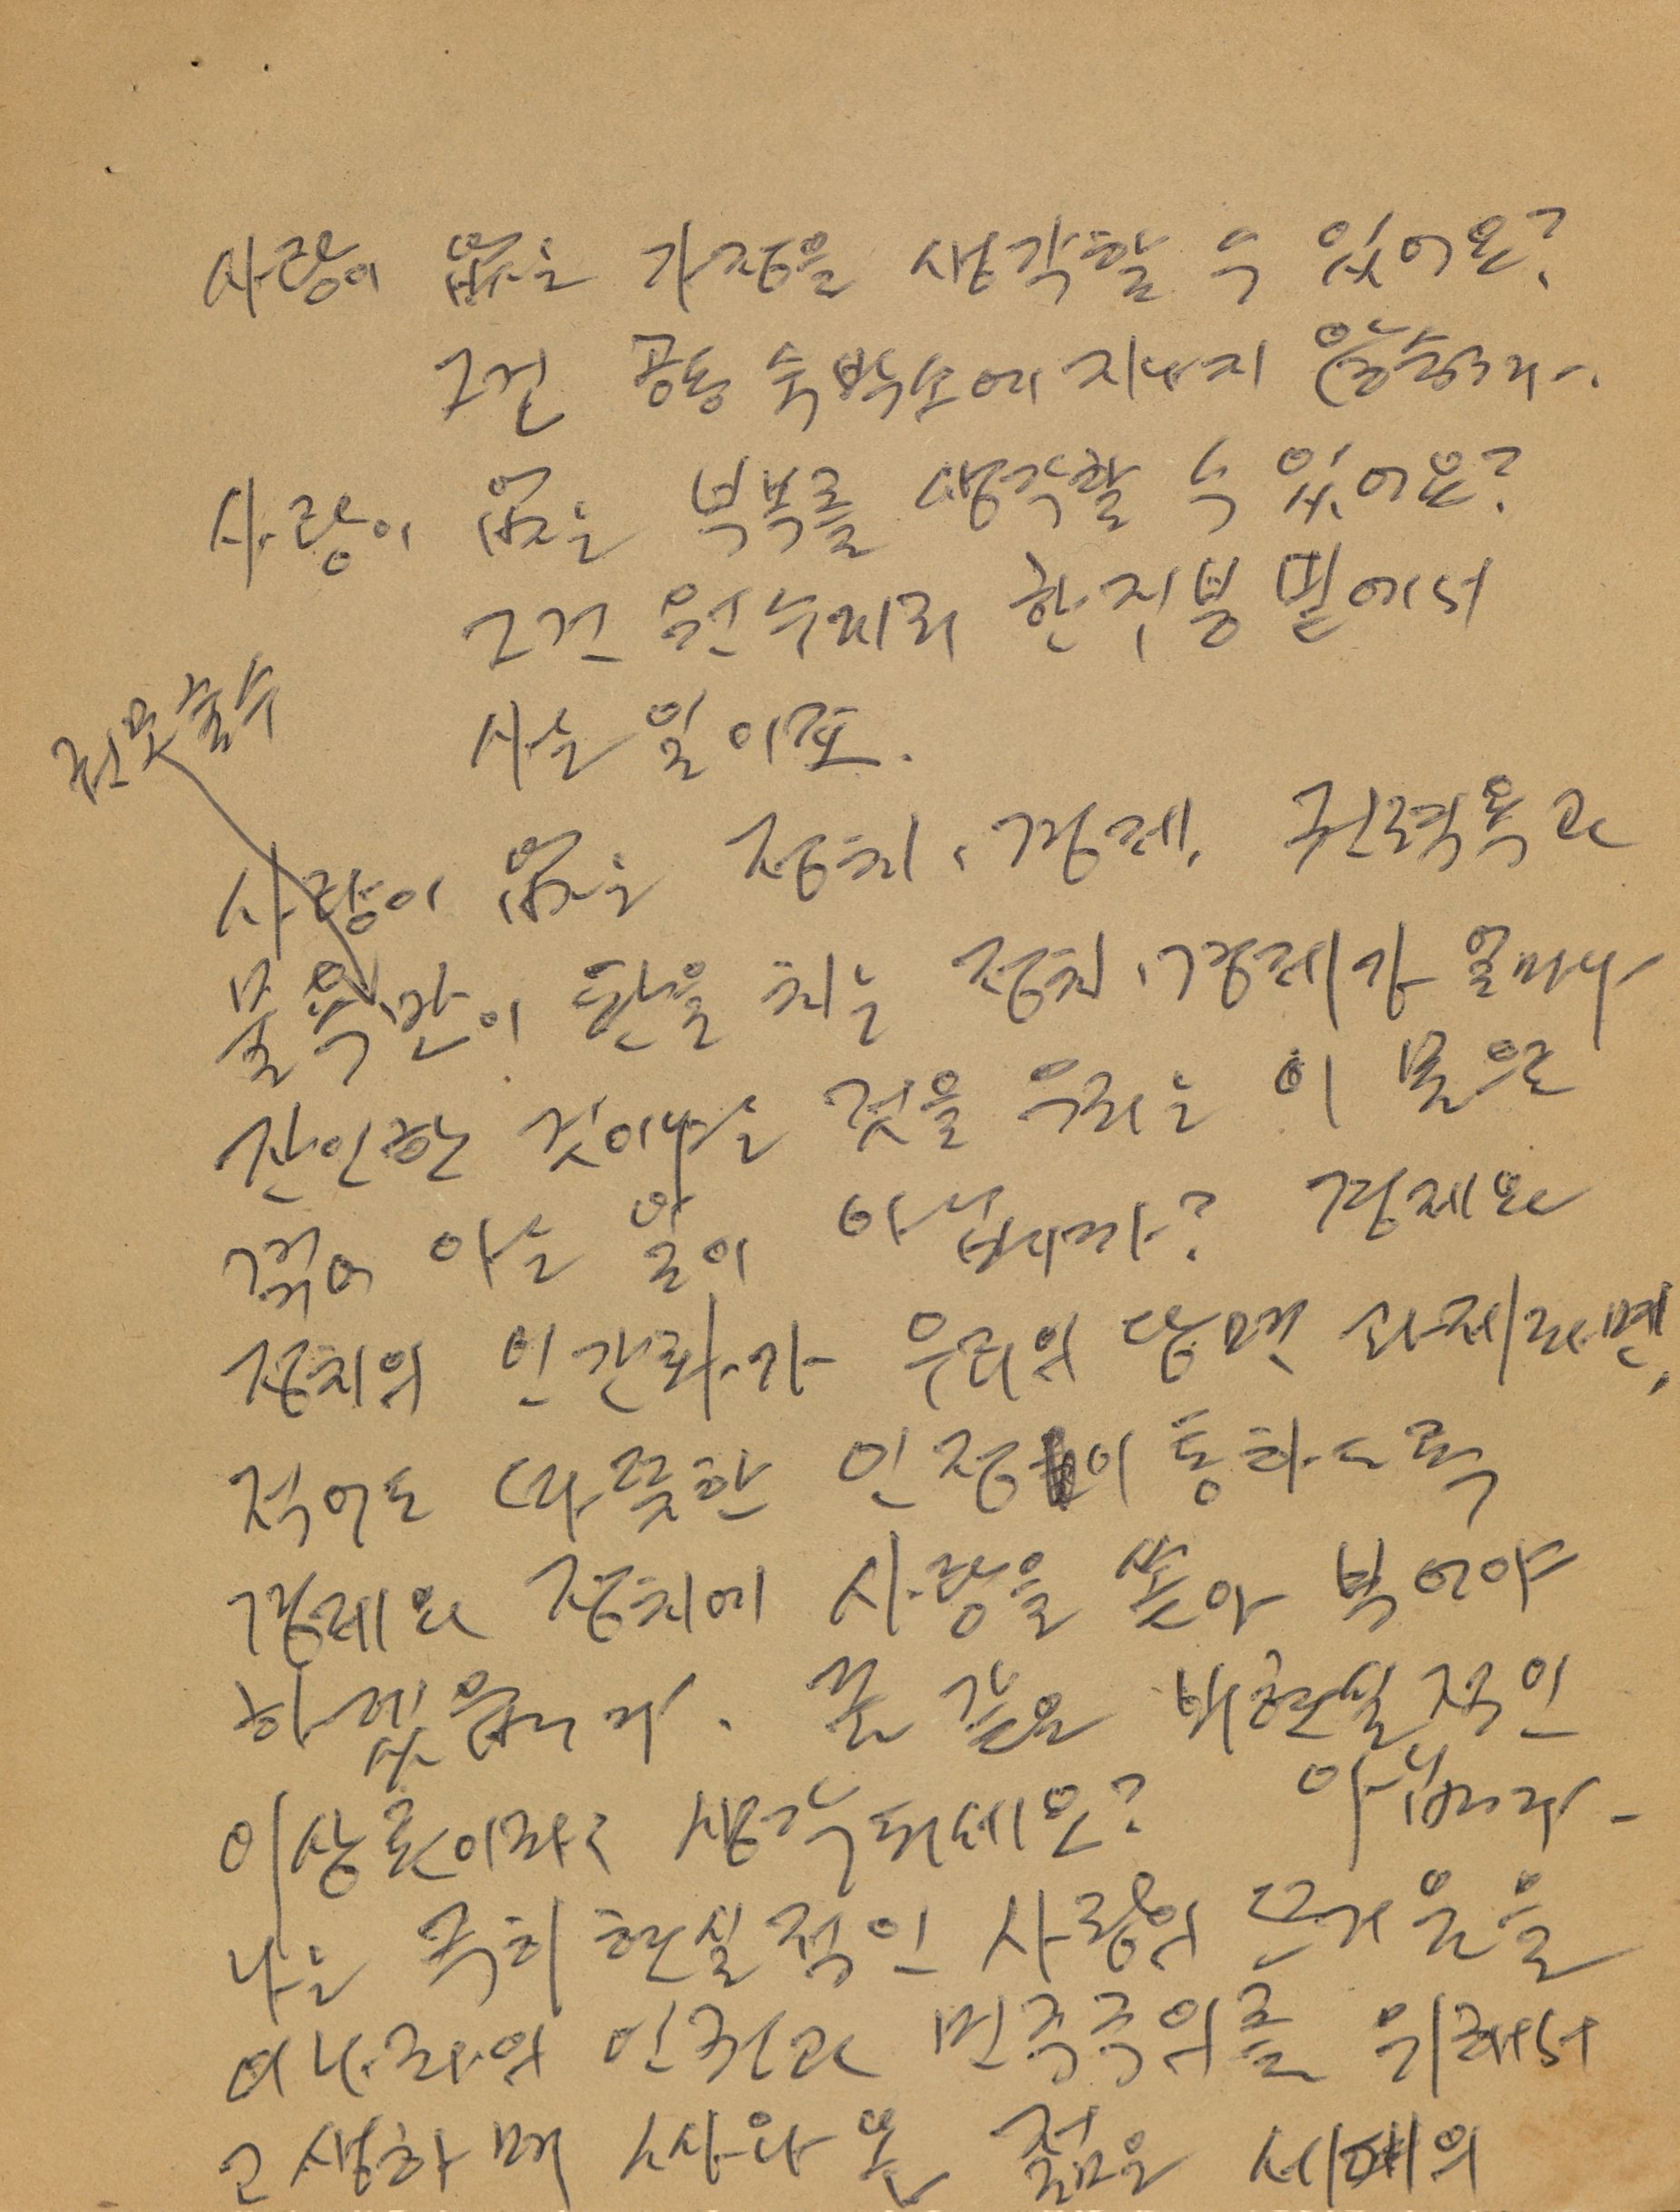 사랑이 없는 가정을 생각할 수 있어요?
그건 공동 숙박소에 지나지 않습니다.
사랑이 없는 부부를 생각할 수 있어요?
그건 원수끼리 한 지붕 밑에서
사는 일이죠.
권모술수
사랑이 없는 정치, 경제, 권력욕과
물욕만이 판을 치는 정치, 경제가 얼마나
잔인한 것이냐는 것을 우리는 이 몸으로
겪어 아는 일이 아닙니까? 경제와
정치의 인간화가 우리의 당면 과제라면,
적어도 따뜻한 인정이 통하도록
경제와 정치에 사랑을 쏟아 부어야
하겠습니다. 꿈 같은 비현실적인
이상론이라고 생각되세요? 아닙니다.
나는 극히 현실적인 사랑의 뜨거움을
이 나라의 인권과 민주주의를 위해서
고생하며 싸워 온 젊은 세대의